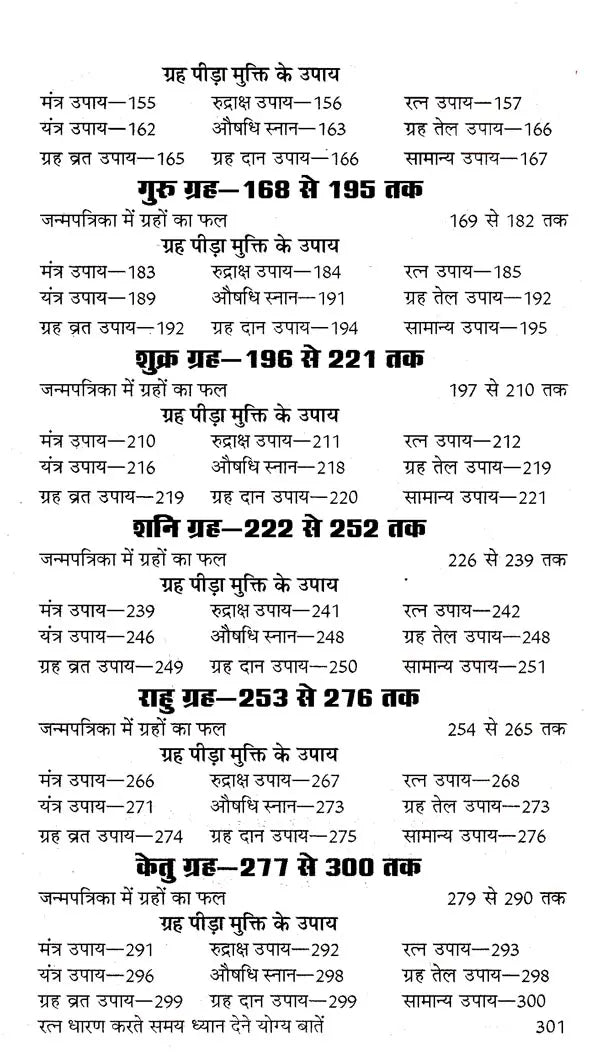 ग्रह पीड़ा मुक्ति के उपाय
मंत्र उपाय—155 रुद्राक्ष उपाय—156 रत्न उपाय—157
यंत्र उपाय—162 औषधि स्नान—163 ग्रह तेल उपाय—166
ग्रह व्रत उपाय—165 ग्रह दान उपाय—166 सामान्य उपाय—167
गुरु ग्रह—168 से 195 तक
जन्मपत्रिका में ग्रहों का फल 169 से 182 तक
ग्रह पीड़ा मुक्ति के उपाय
मंत्र उपाय—183 रुद्राक्ष उपाय—184 रत्न उपाय—185
यंत्र उपाय—189 औषधि स्नान—191 ग्रह तेल उपाय—192
ग्रह व्रत उपाय—192 ग्रह दान उपाय—194 सामान्य उपाय—195
शुक्र ग्रह—196 से 221 तक
जन्मपत्रिका में ग्रहों का फल 197 से 210 तक
ग्रह पीड़ा मुक्ति के उपाय
मंत्र उपाय—210 रुद्राक्ष उपाय—211 रत्न उपाय—212
यंत्र उपाय—216 औषधि स्नान—218 ग्रह तेल उपाय—219
ग्रह व्रत उपाय—219 ग्रह दान उपाय—220 सामान्य उपाय—221
शनि ग्रह—222 से 252 तक
जन्मपत्रिका में ग्रहों का फल 226 से 239 तक
ग्रह पीड़ा मुक्ति के उपाय
मंत्र उपाय—239 रुद्राक्ष उपाय—241 रत्न उपाय—242
यंत्र उपाय—246 औषधि स्नान—248 ग्रह तेल उपाय—248
ग्रह व्रत उपाय—249 ग्रह दान उपाय—250 सामान्य उपाय—251
राहु ग्रह—253 से 276 तक
जन्मपत्रिका में ग्रहों का फल 254 से 265 तक
ग्रह पीड़ा मुक्ति के उपाय
मंत्र उपाय—266 रुद्राक्ष उपाय—267 रत्न उपाय—268
यंत्र उपाय—271 औषधि स्नान—273 ग्रह तेल उपाय—273
ग्रह व्रत उपाय—274 ग्रह दान उपाय—275 सामान्य उपाय—276
केतु ग्रह—277 से 300 तक
जन्मपत्रिका में ग्रहों का फल 279 से 290 तक
ग्रह पीड़ा मुक्ति के उपाय
मंत्र उपाय—291 रुद्राक्ष उपाय—292 रत्न उपाय—293
यंत्र उपाय—296 औषधि स्नान—298 ग्रह तेल उपाय—298
ग्रह व्रत उपाय—299 ग्रह दान उपाय—299 सामान्य उपाय—300
रत्न धारण करते समय ध्यान देने योग्य बातें 301